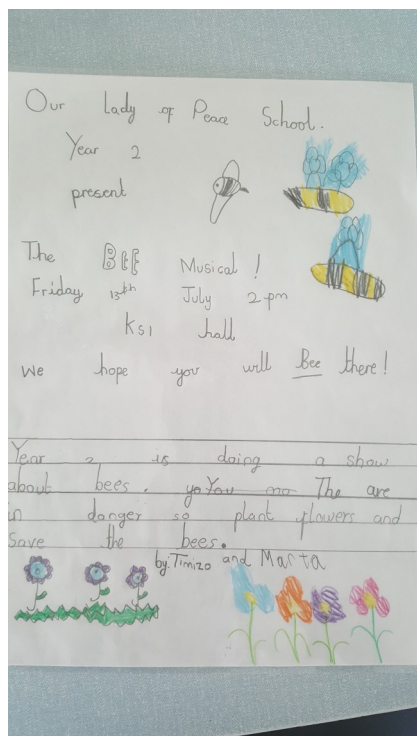 Our Lady of Peace School.
Year 2
present
The BEE Musical!
Friday 13th July 2pm
KS1 hall
we hope you will Bee there!
Year 2 is doing a show
about bees. yo You ma The are
in danger so plant flowers and
save the bees.
by: Timizo and Marta